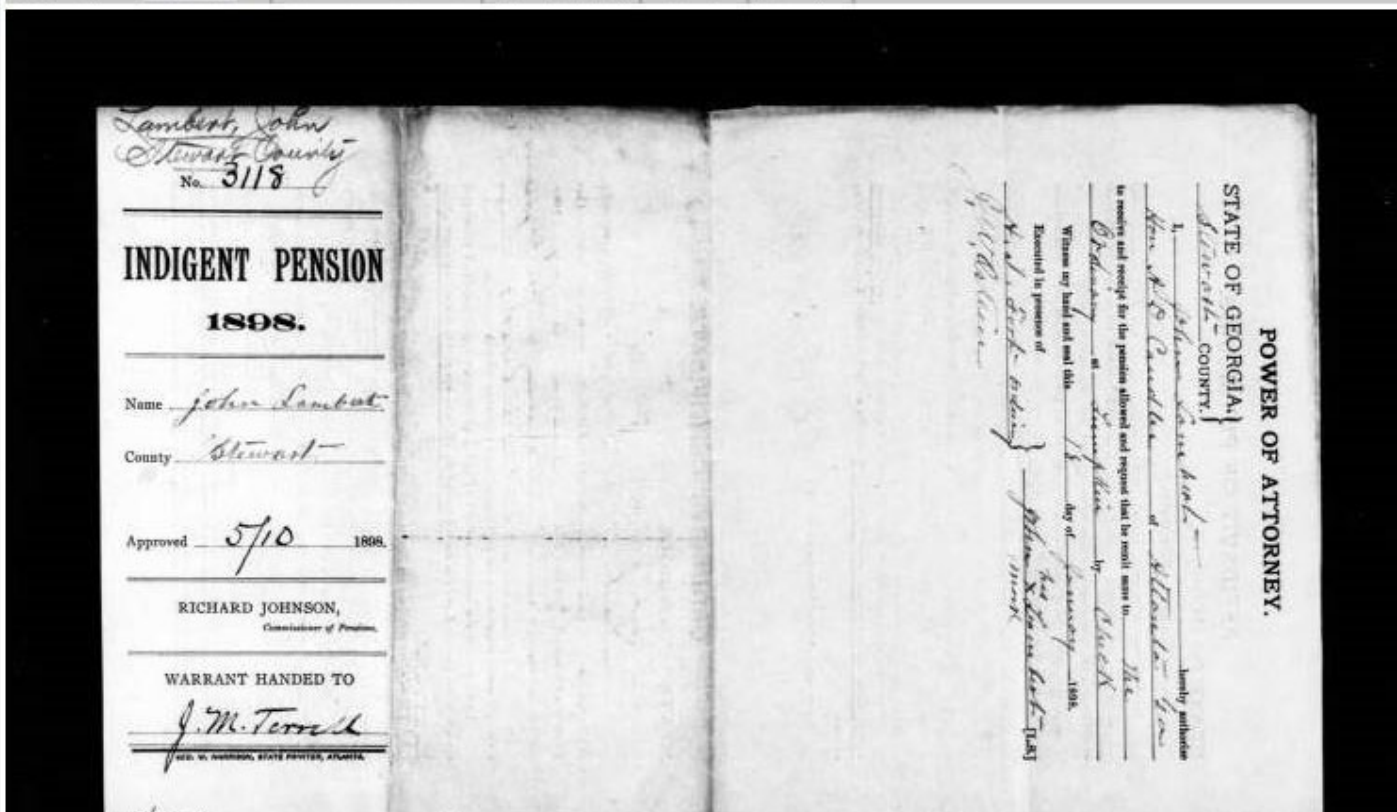 Lambert, John
Stewart County
No. 3118
INDIGENT PENSION
1898.
Name John Lambert
County Stewart
Approved 5/10 1898.
RICHARD JOHNSON,
Commissioner of Pensions.
WARRANT HANDED TO
J. M. Terrell
GEO. W. HARRISON, STATE PRINTER, ATLANTA.
POWER OF ATTORNEY.
STATE OF GEORGIA,
Stewart COUNTY.
I, John Lambert hereby authorize
Hon A D Candler of Atlanta Ga
to receive and receipt for the pension allowed and request that he remit same to The
Ordinary at Lumpkin by Check
Witness my hand and seal this 18 day of January 1898.
Executed in presence of
his
John X Lambert [L.S.]
mark